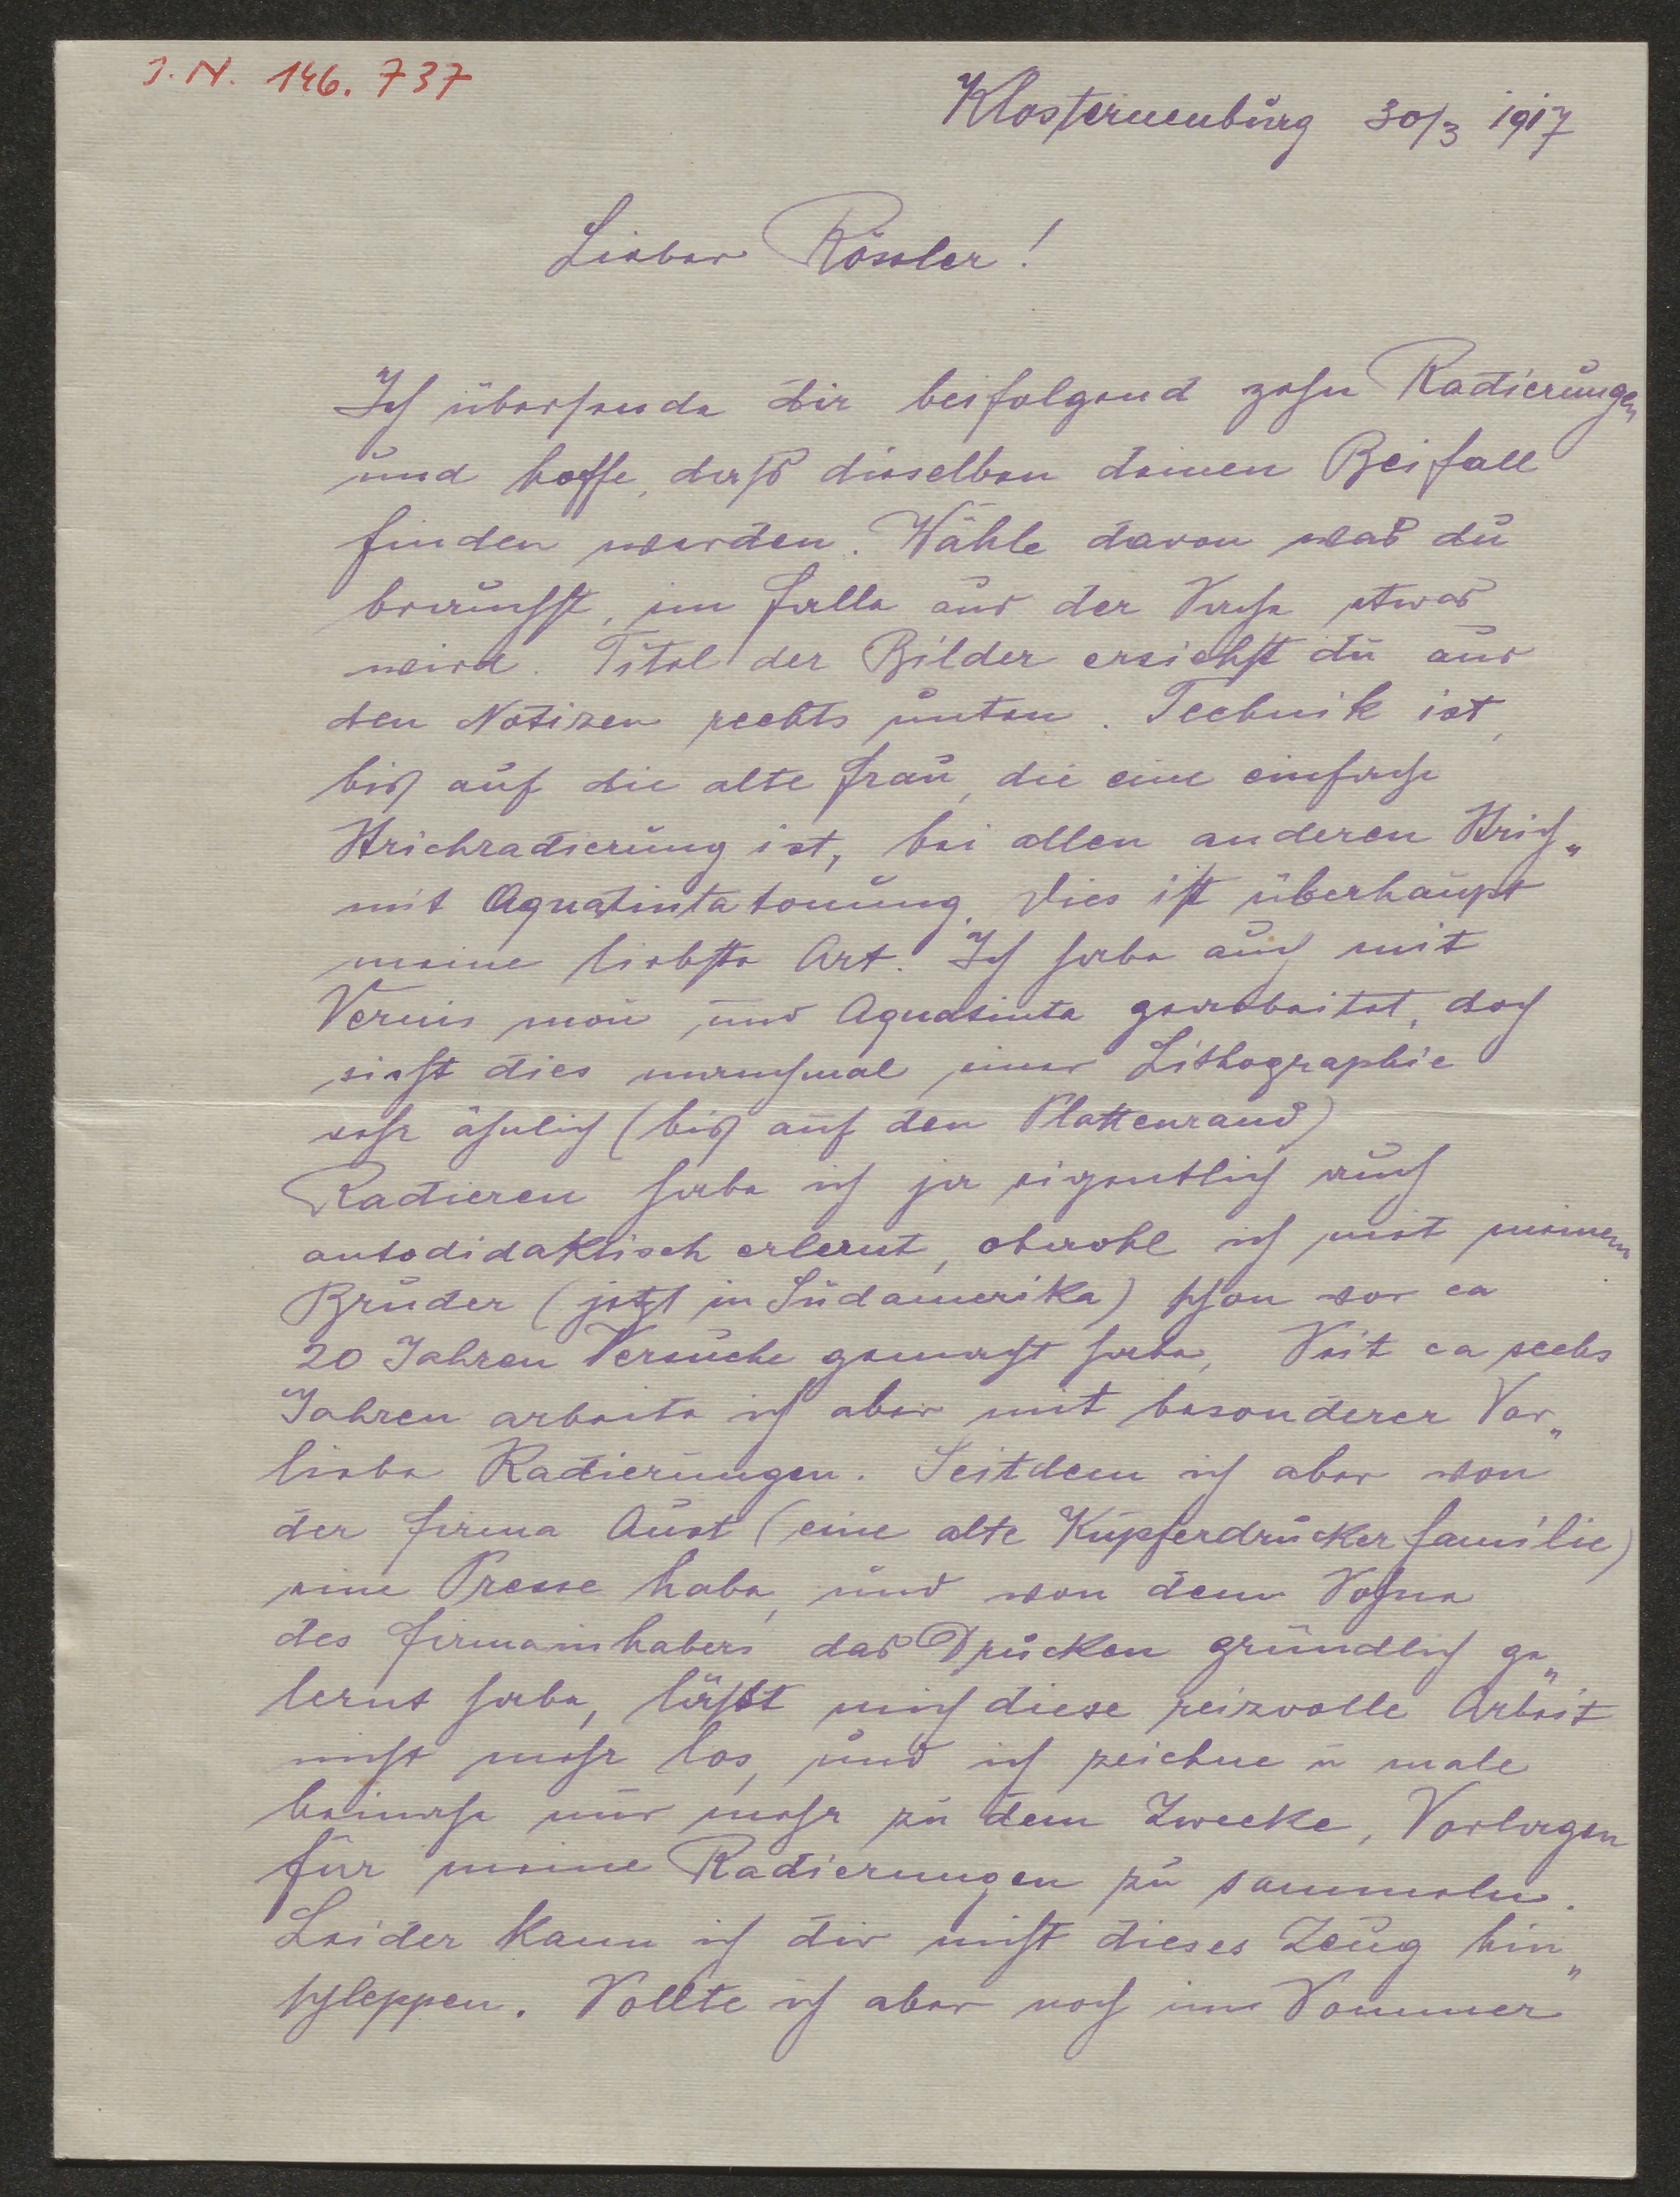 I.N. 146.737
Klosterneuburg 30/3 1917
Lieber Rössler!
Ich übersende dir beifolgend zehn Radierungen
und hoffe, daß dieselben deinen Beifall
finden werden. Wähle davon was du
brauchst, im Falle aus der Sache etwas
wird. Titel der Bilder ersiehst du aus
den Notizen rechts unten. Technik ist,
bis auf die alte Frau, die eine einfache
Strichradierung ist, bei allen anderen Strich„
mit Aquatintatonung. Dies ist überhaupt
meine liebste Art. Ich habe auch mit
Vernis mou und Aquatinta gearbeitet, doch
sieht dies manchmal einer Lithographie
sehr ähnlich (bis auf den Plattenrand)
Radieren habe ich ja eigentlich auch
autodidaktisch erlernt, obwohl ich mit meinem
Bruder (jetzt in Südamerika) schon vor ca
20 Jahren Versuche gemacht habe, Seit ca sechs
Jahren arbeite ich aber mit besonderer Vor„
liebe Radierungen. Seitdem ich aber von
der Firma Aust (eine alte Kupferdruckerfamilie)
eine Presse habe, und von dem Sohne
des Firmainhabers das Drucken gründlich ge„
lernt habe, läßt mich diese reizvolle Arbeit
nicht mehr los, und ich zeichne u male
beinahe nur mehr zu dem Zwecke, Vorlagen
für meine Radierungen zu sammeln.
Leider kann ich dir nicht dieses Zeug hin„
schleppen. Sollte ich aber noch im Sommer